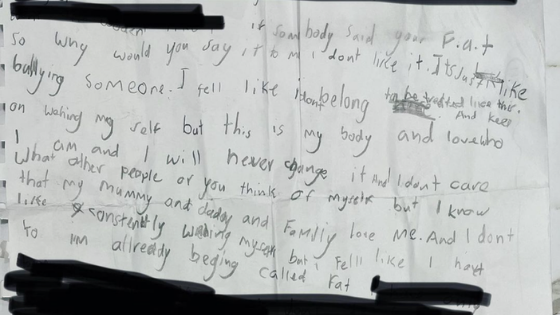 if sombody said your F.a.t
so why would you say it to m I dont like it. Its Just like
bullying someone. I fell like i dont belong to be treated like this.
And keep
on wating my self but this is my body and love who
I am and I will never change it and I dont care
What other people or you think of myself but I know
that my mummy and daddy and Family love me. And I dont
like constently wating myself but i felll like I have
to im allready beging called Fat